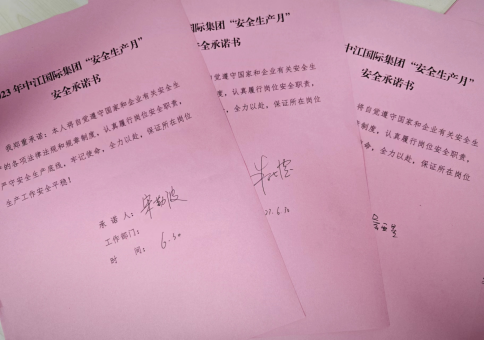 023年中江国际集团“安全生产月”
安全承诺书
我郑重承诺:本人将自觉遵守国家和企业有关安全生
产的各项法律法规和规章制度,认真履行岗位安全职责,
严守安全生产底线,牢记使命,全力以赴,保证所在岗位
生产工作安全平稳!
承诺人:
工作部门:
时 间: 6.30
国际集团“安全生产月”
安全承诺书
将自觉遵守国家和企业有关安全生
制度,认真履行岗位安全职责,
使命,全力以赴,保证所在岗位
中江国际集团“安全生产月”
安全承诺书
将自觉遵守国家和企业有关安全生
制度,认真履行岗位安全职责,
使命,全力以赴,保证所在岗位